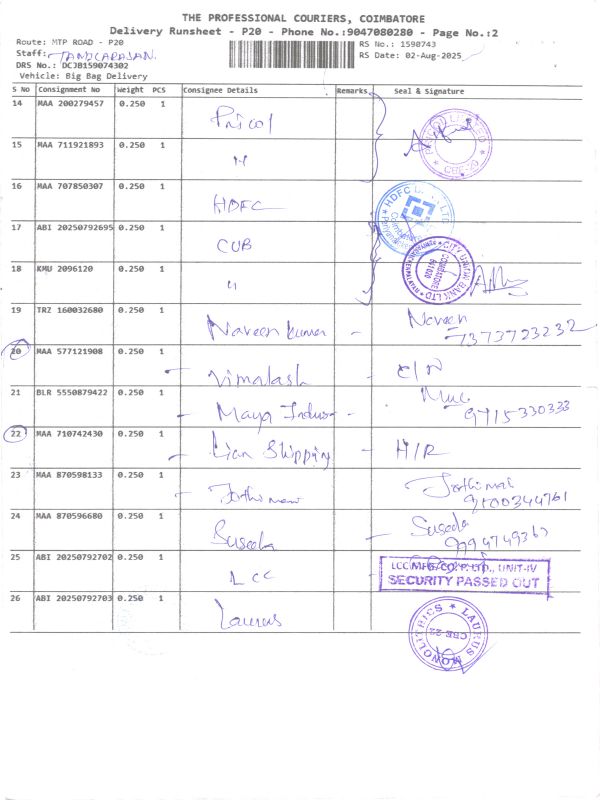 THE PROFESSIONAL COURIERS, COIMBATORE
Delivery Runsheet - P20 - Phone No.:9047080280 - Page No.:2
Route: MTP ROAD - P20
RS No.: 1598743
Staff:
DRS No.: DCJB159074302
RS Date: 02-Aug-2025
Vehicle: Big Bag Delivery
S No Consignment No Weight PCS Consignee Details Remarks Seal & Signature
14 MAA 200279457 0.250 1 Pricol
15 MAA 711921893 0.250 1 "
16 MAA 707850307 0.250 1 HDFC
17 ABI 20250792695 0.250 1 CUB
18 KMU 2096120 0.250 1 "
19 TRZ 160032680 0.250 1 Naveen kumar - Naveen
7373723232
20 MAA 577121908 0.250 1 - Vimalash - C/N
21 BLR 5550879422 0.250 1 - Maya Indus -
9715330333
22 MAA 710742430 0.250 1 - Lian Shipping - H/R
23 MAA 870598133 0.250 1 - Jothimani - Jothimai
9500344761
24 MAA 870596680 0.250 1 Suseela - Suseela
25 ABI 20250792702 0.250 1 LCC
LCC MFG CO P. LTD., UNIT-IV
SECURITY PASSED OUT
26 ABI 20250792703 0.250 1 Laurus
LAURUS
MONOLITHICS
CBE 22